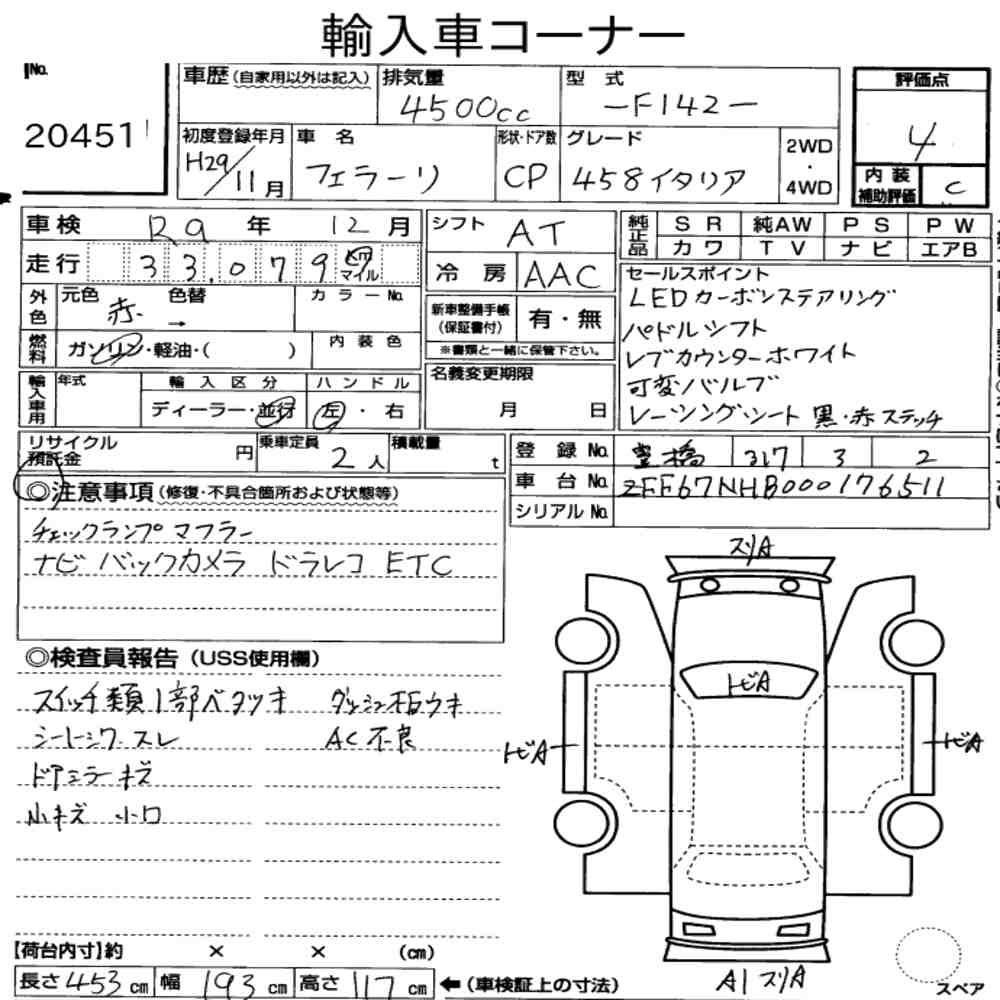 輸入車コーナー
No.
20451
車歴(自家用以外は記入)
排気量
4500cc
型式
-F142-
評価点
4
初度登録年月
H29/11月
車名
フェラーリ
形状・ドア数
CP
グレード
458イタリア
2WD
・
4WD
内装
補助評価
C
車検 R9年 12月
シフト AT
純正品
SR 純AW PS PW
カワ TV ナビ エアB
走行 33,079 km
マイル
冷房 AAC
セールスポイント
LEDカーボンステアリング
パドルシフト
レブカウンターホワイト
可変バルブ
レーシングシート 黒・赤ステッチ
外色
元色 赤 → 色替
カラーNo.
新車整備手帳
(保証書付)
有・無
※書類と一緒に保管下さい。
燃料
ガソリン・軽油・( )
内装色
輸入車用
年式
輸入区分
ディーラー・並行
ハンドル
左・右
名義変更期限
月 日
リサイクル
預託金
円
乗車定員
2人
積載量
t
登録No. 豊橋 317 3 2
車台No. ZFF67NHB000176511
シリアルNo.
◎注意事項(修復・不具合箇所および状態等)
チェックランプ マフラー
ナビ バックカメラ ドラレコ ETC
◎検査員報告(USS使用欄)
スイッチ類1部ベタツキ ダッシュ板ウキ
シートシワ・スレ AC不良
ドアミラーキズ
小キズ 小凹
スリA
トビA
トビA
トビA
A1 スリA
スペア
【荷台内寸】約 × × (cm)
長さ453cm 幅193cm 高さ117cm ←(車検証上の寸法)